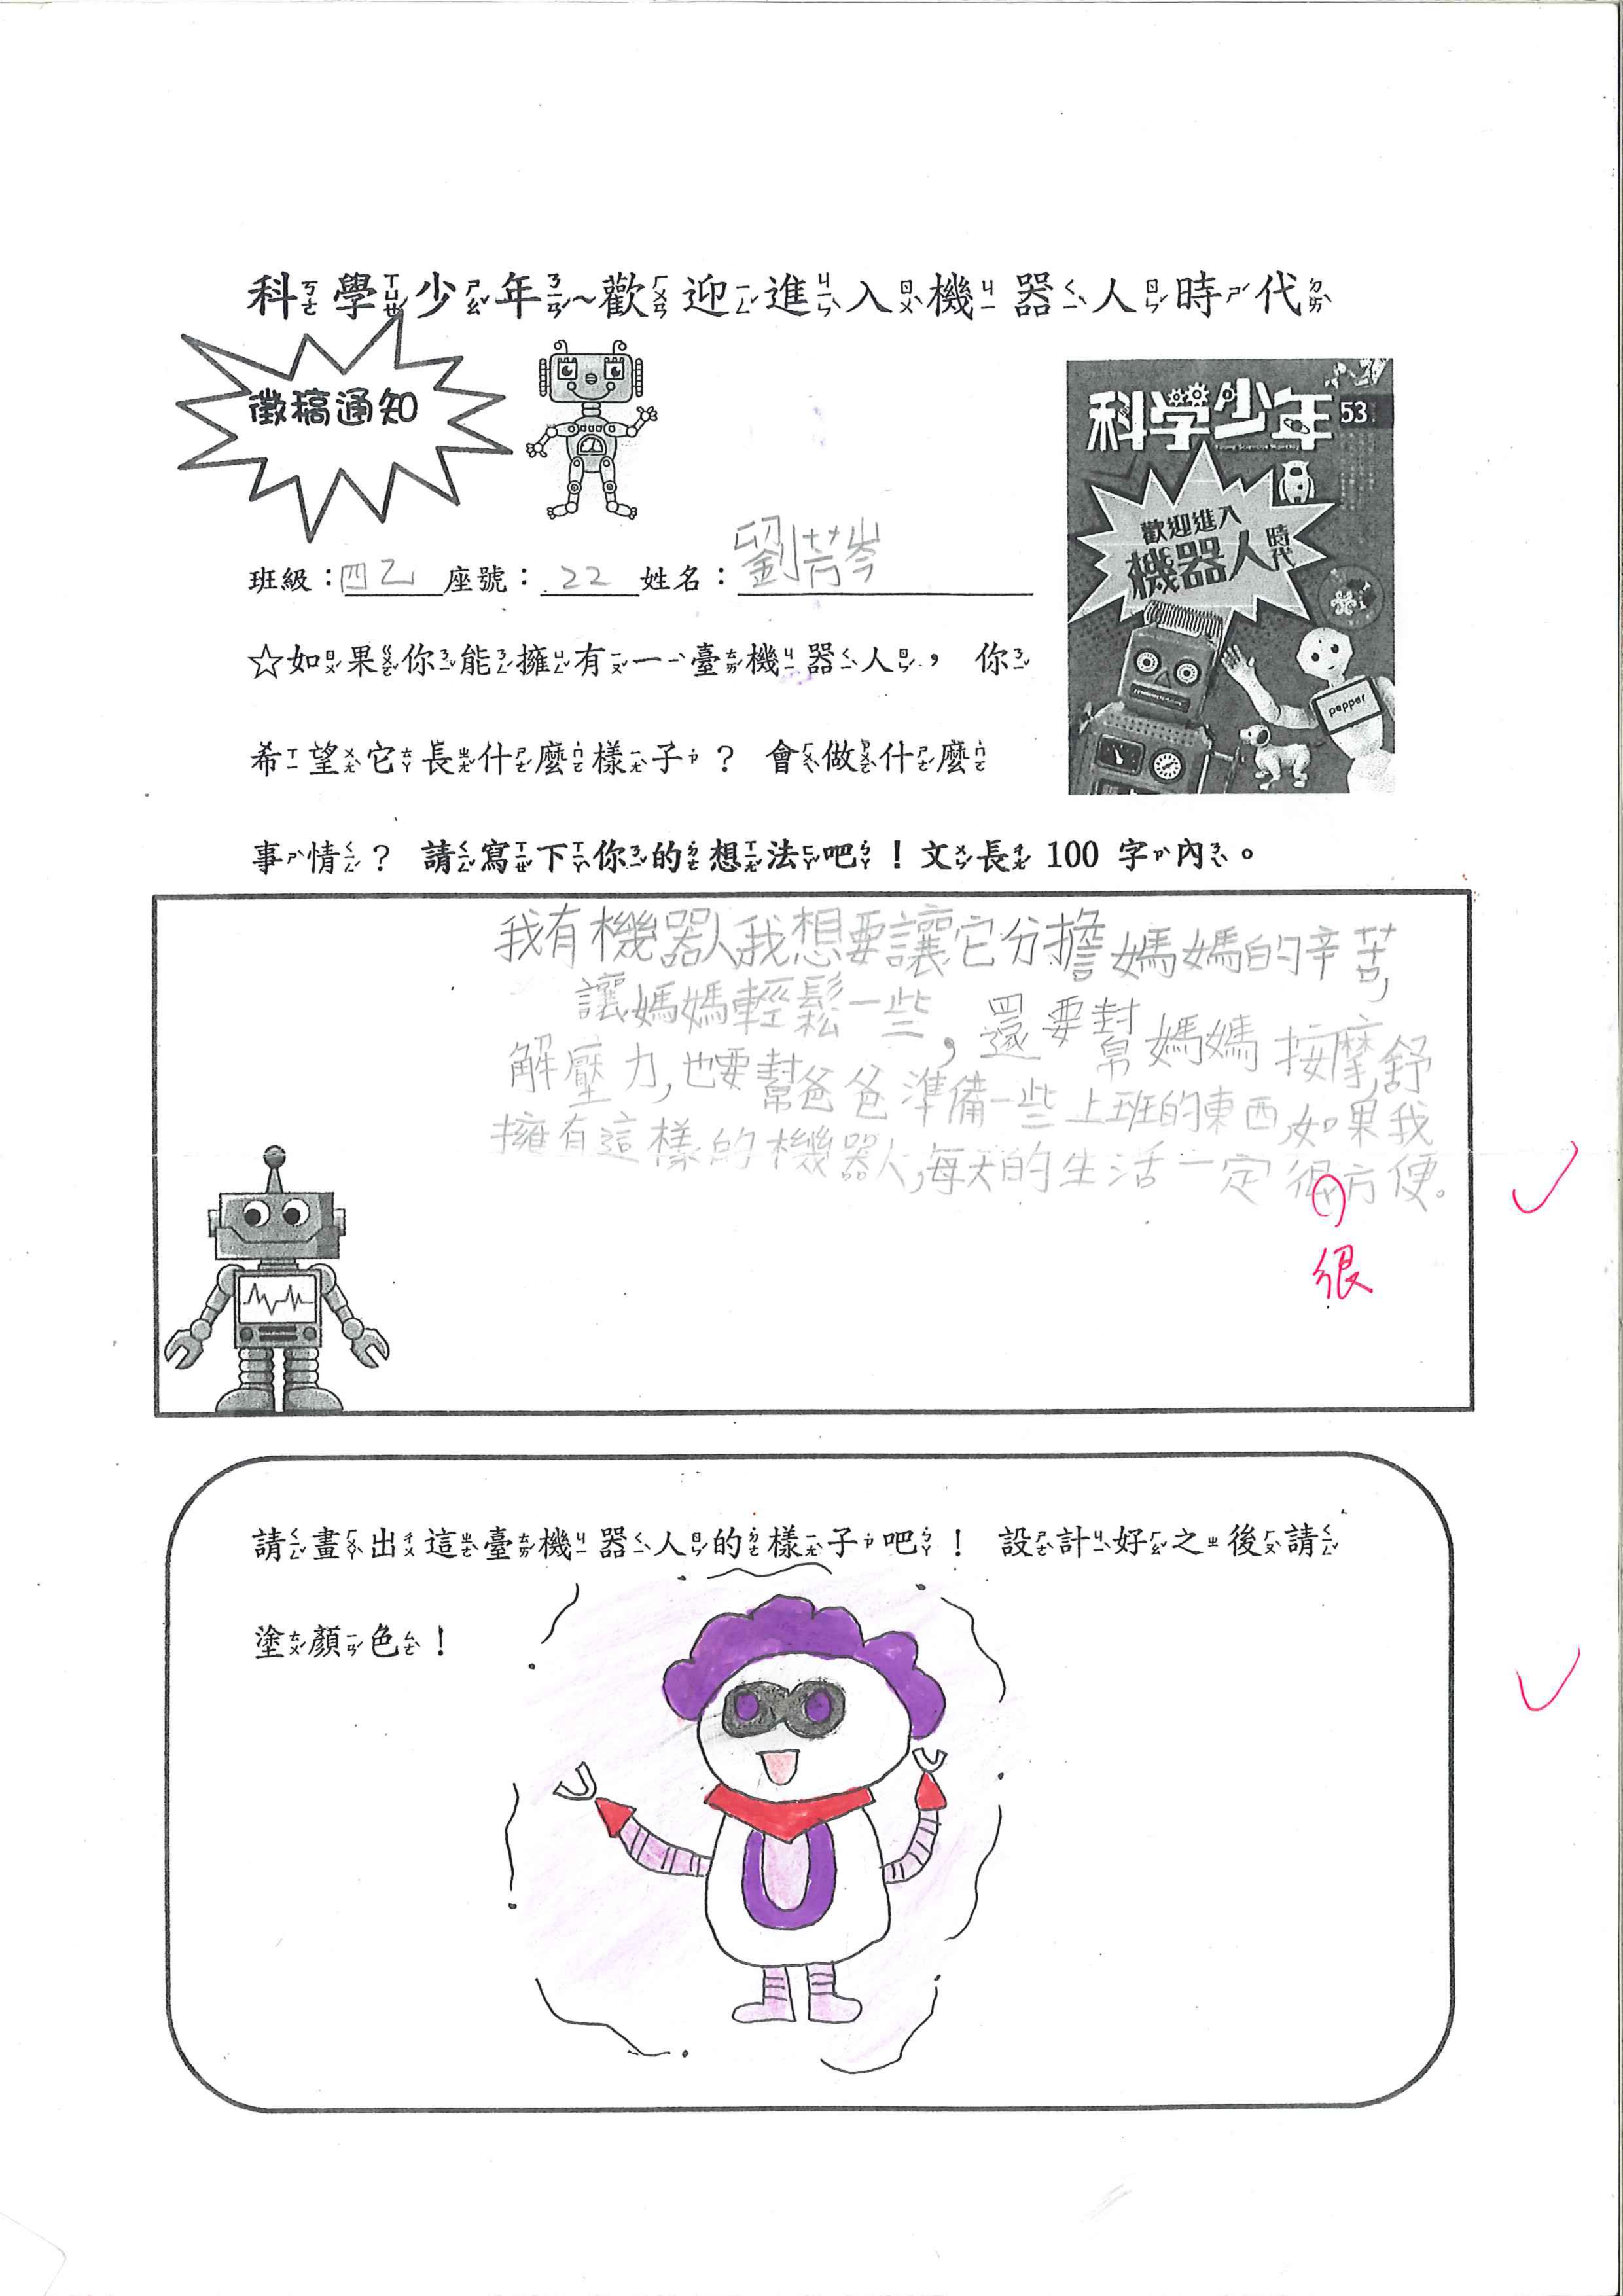 科學少年~歡迎進入機器人時代
徵稿通知
科学少年 53
歡迎進入
機器人時代
pepper
班級：四乙 座號：22 姓名：劉芳岑
☆如果你能擁有一臺機器人， 你
希望它長什麼樣子？ 會做什麼
事情？ 請寫下你的想法吧！文長 100 字內。
我有機器人我想要讓它分擔媽媽的辛苦,
讓媽媽輕鬆一些，還要幫媽媽按摩,舒
解壓力,也要幫爸爸準備一些上班的東西,如果我
擁有這樣的機器人,每天的生活一定很方便。
很
請畫出這臺機器人的樣子吧！ 設計好之後請
塗顏色！